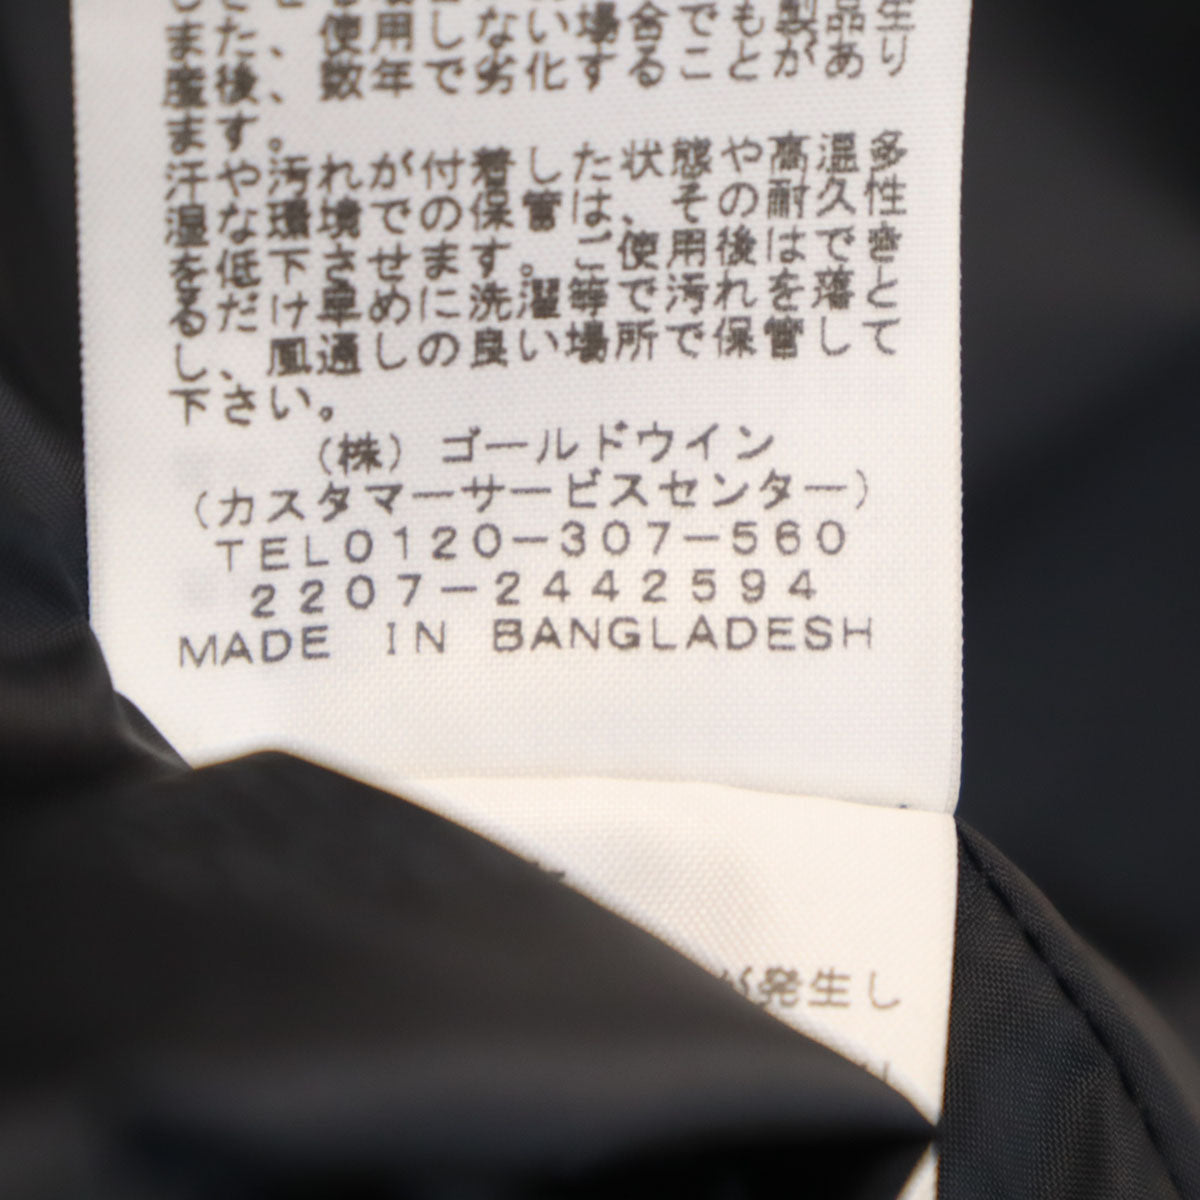 また、使用しない場合でも製品あ
後、数年で劣化することがあり
ます。
汗や汚れが付着した状態や高温多
湿な環境での保管は、その耐久性
を低下させます。ご使用後はできる
だけ早めに洗濯等で汚れを落として
し、風通しの良い場所で保管して
下さい。
（株）ゴールドウイン
（カスタマーサービスセンター）
TEL0120-307-560
2207-2442594
MADE IN BANGLADESH
が発生し